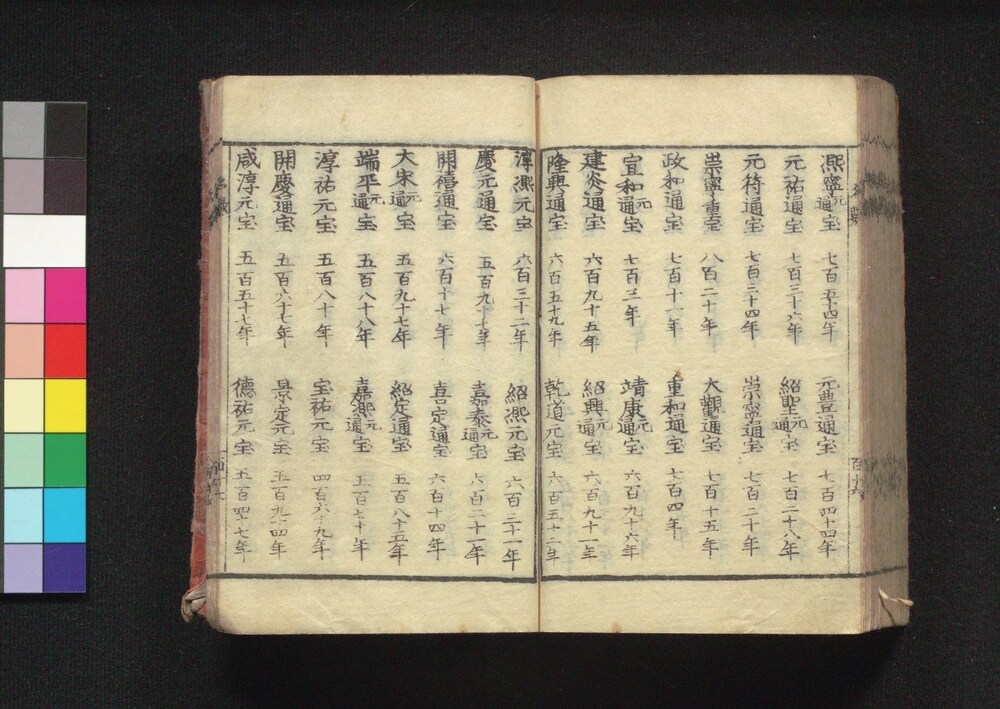 熈寧元通宝 七百五十四年 元豊通宝 七百四十四年
元祐通宝 七百三十六年 紹聖元通宝 七百二十八年
元符通宝 七百三十四年 崇寧通宝 七百二十年
崇寧重宝 八百二十年 大觀通宝 七百十五年
政和通宝 七百十一年 重和通宝 七百四年
宣和元通宝 七百三年 靖康元通宝 六百九十六年
建炎通宝 六百九十五年 紹興元通宝 六百九十一年
隆興通宝 六百五十九年 乾道元宝 六百五十二年
淳熈元宝 六百三十二年 紹熈元宝 六百二十一年
慶元通宝 五百九十七年 嘉泰元通宝 六百二十一年
開禧通宝 六百十七年 嘉定通宝 六百十四年
大宋元通宝 五百九十七年 紹定通宝 五百八十五年
端平元通宝 五百八十八年 嘉熈元通宝 五百七十年
淳祐元宝 五百八十年 宝祐元宝 四百六十九年
開慶通宝 五百六十七年 景定元宝 五百九十四年
咸淳元宝 五百五十七年 德祐元宝 五百四十七年